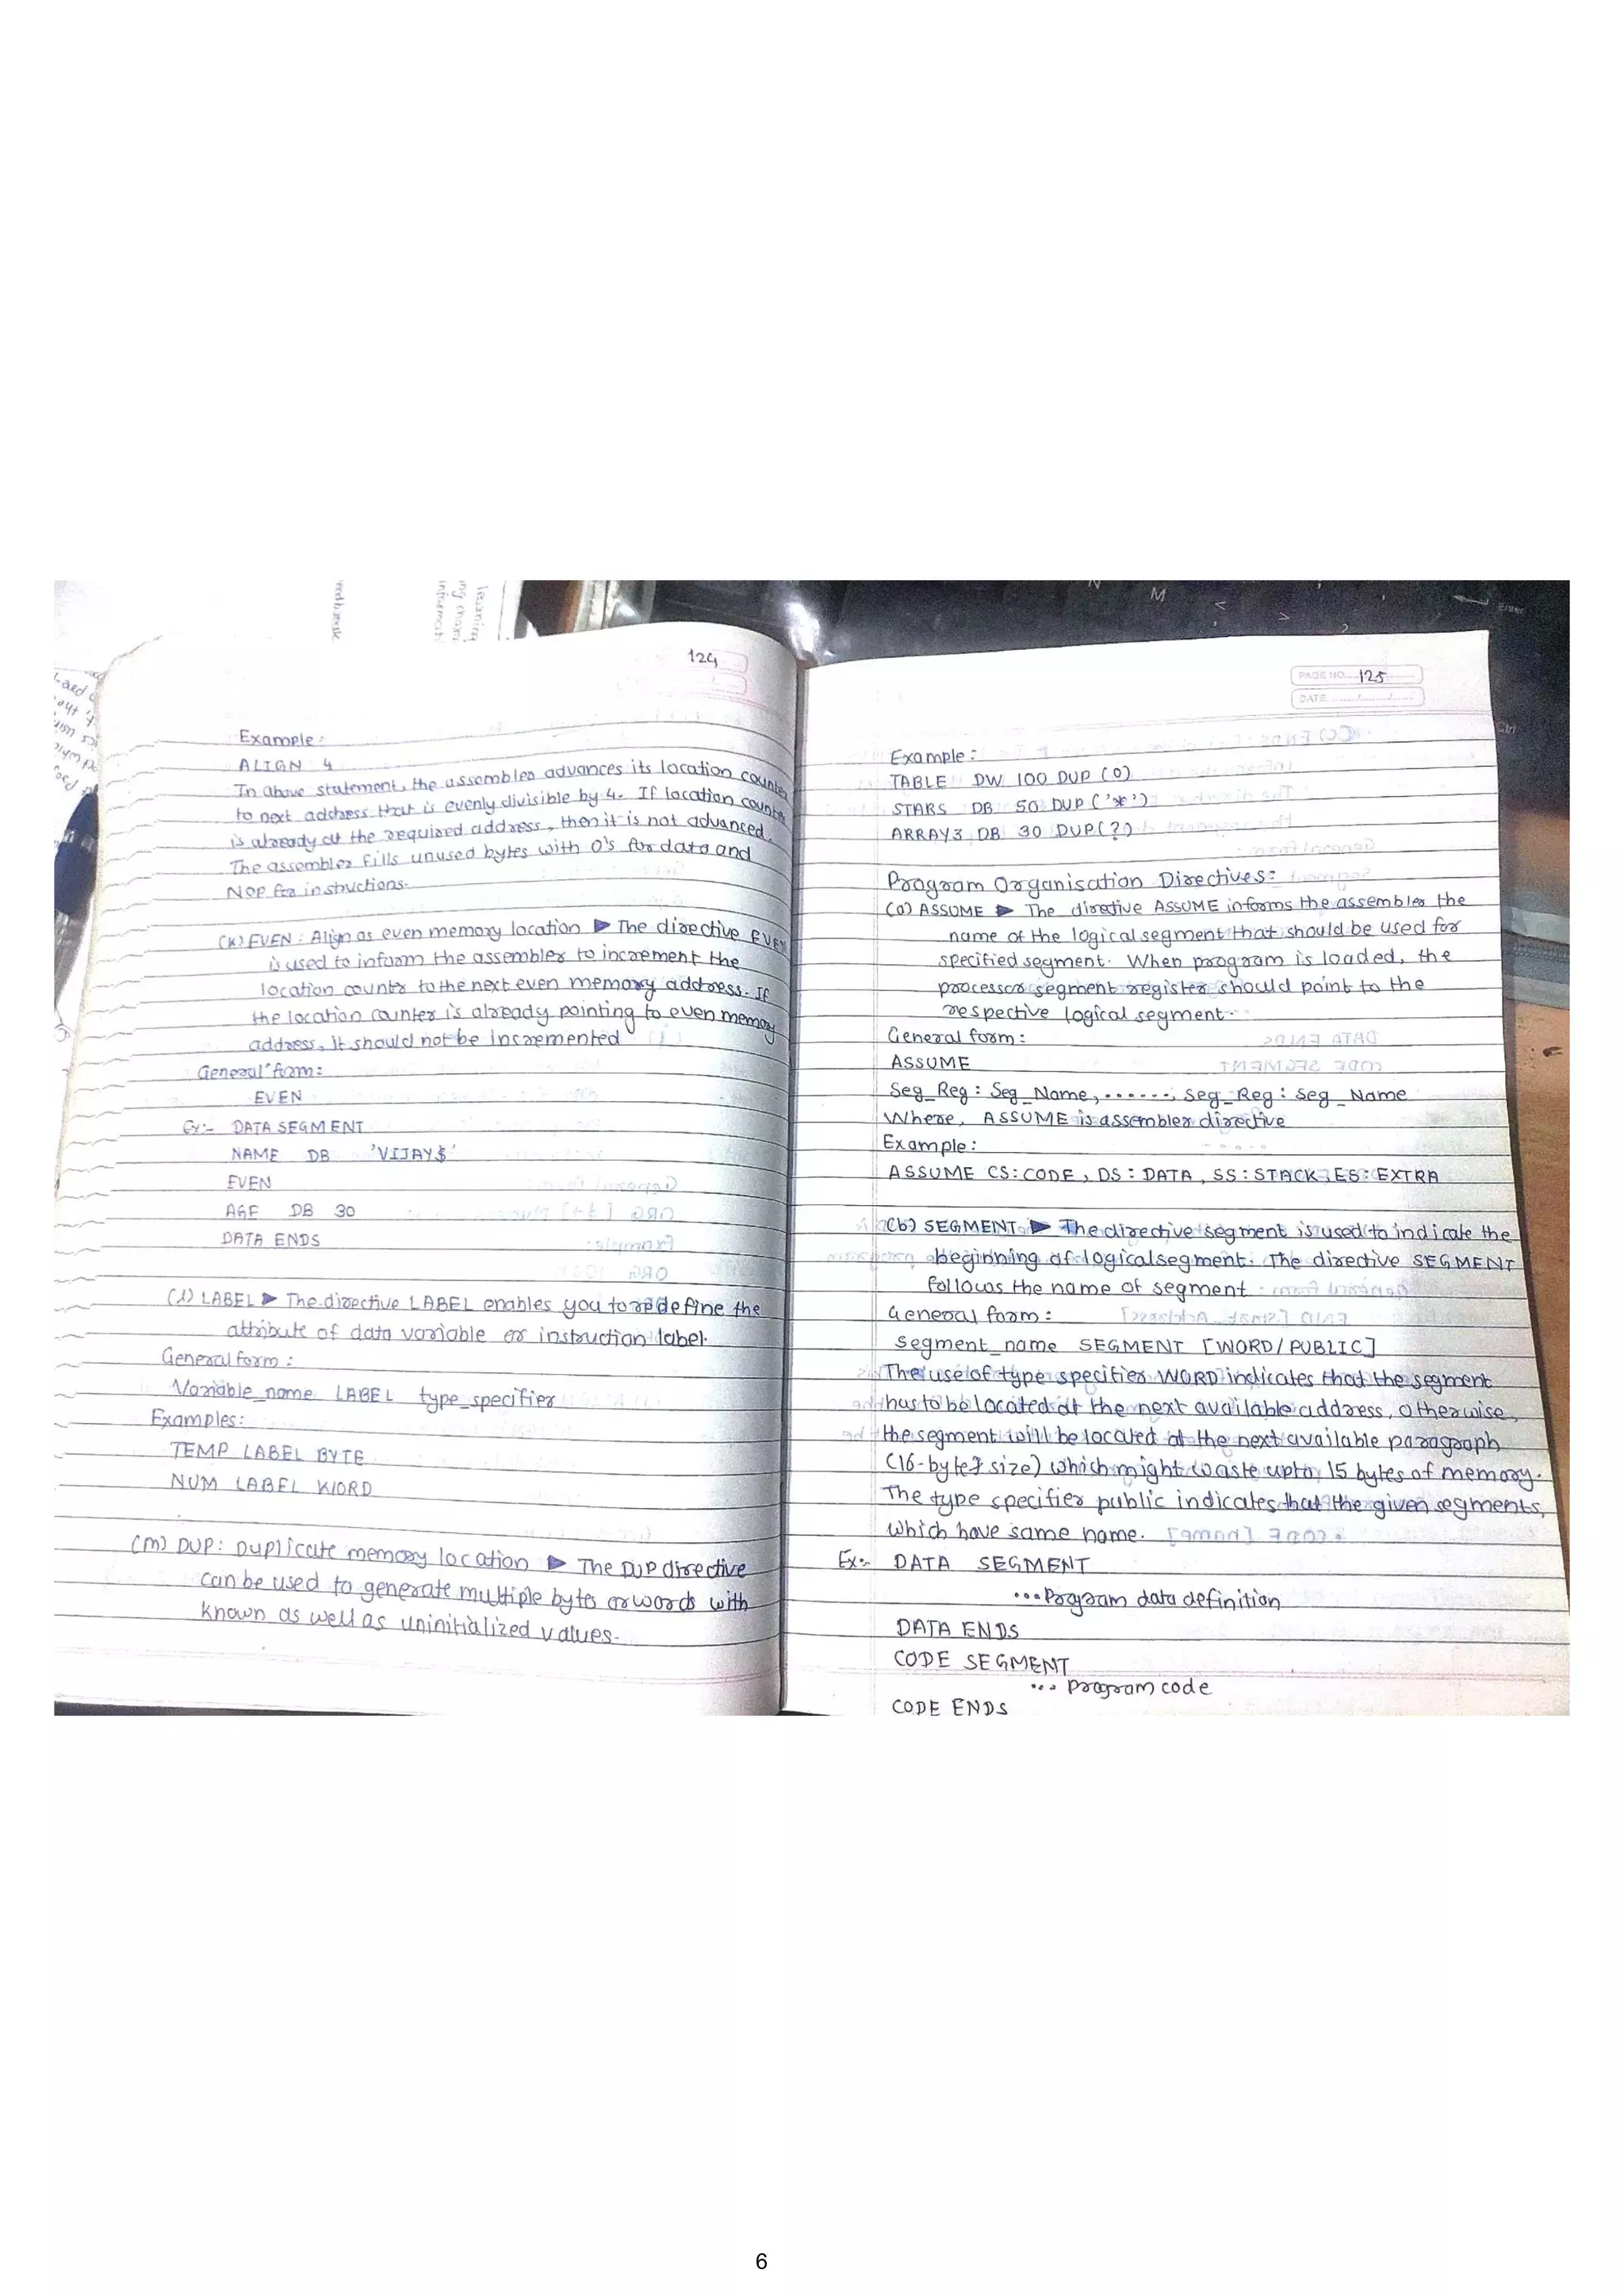 124
Example:
ALIGN 4
In above statement, the assembler advances its location counter
to next address that is evenly divisible by 4. If location counter
is already at the required address, then it is not advanced.
The assembler fills unused bytes with 0's for data and
NOP for instructions.
(K) EVEN : Align as even memory location ▶ The directive EVEN
is used to inform the assembler to increment the
location counter to the next even memory address. If
the location counter is already pointing to even memory
address, It should not be incremented
General form:
EVEN
Ex:- DATA SEGMENT
NAME DB 'VIJAY$'
EVEN
AGE DB 30
DATA ENDS
(l) LABEL ▶ The directive LABEL enables you to redefine the
attribute of data variable or instruction label.
General form :
Variable_name LABEL type_specifier
Examples:
TEMP LABEL BYTE
NUM LABEL WORD
(m) DUP: Duplicate memory location ▶ The DUP directive
can be used to generate multiple bytes or words with
known as well as uninitialized values.
PAGE NO. 125
DATE
Example :
TABLE DW 100 DUP (0)
STARS DB 50 DUP ('*')
ARRAY3 DB 30 DUP(?)
Program Organisation Directives:
(a) ASSUME ▶ The directive ASSUME informs the assembler the
name of the logical segment that should be used for
specified segment. When program is loaded, the
processor segment register should point to the
respective logical segment.
General form :
ASSUME
Seg_Reg : Seg_Name, ......, Seg_Reg : Seg_Name
Where, ASSUME is assembler directive
Example :
ASSUME CS: CODE, DS : DATA, SS : STACK, ES: EXTRA
(b) SEGMENT ▶ The directive segment is used to indicate the
beginning of logical segment. The directive SEGMENT
follows the name of segment
General form :
Segment_name SEGMENT [WORD/PUBLIC]
The use of type specifier WORD indicates that the segment
has to be located at the next available address, otherwise,
the segment will be located at the next available paragraph
(16-byte size) which might waste upto 15 bytes of memory.
The type specifier public indicates that the given segments,
which have same name.
Ex:- DATA SEGMENT
...Program data definition
DATA ENDS
CODE SEGMENT
... Program code
CODE ENDS
6